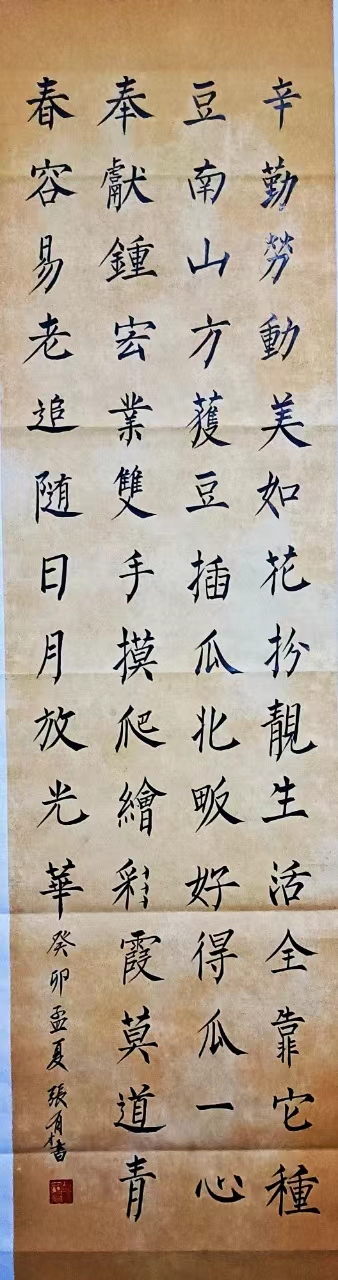 辛勤勞動美如花扮靚生活全靠它種
豆南山方獲豆插瓜北畈好得瓜一心
奉獻鍾宏業雙手摸爬繪彩霞莫道青
春容易老追随日月放光華
癸卯孟夏張有才書